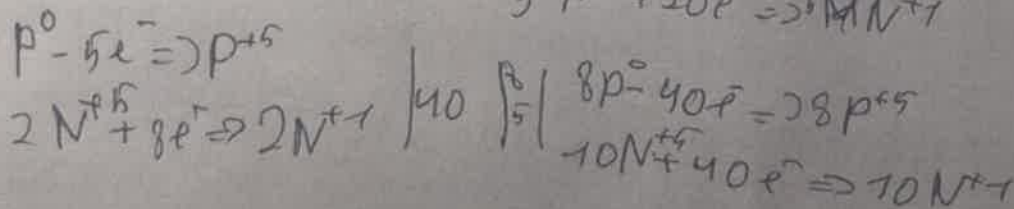 20e⁻ => N⁺¹
P⁰ - 5e⁻ => P⁺⁵
2N⁺⁵ + 8e⁻ => 2N⁺¹ | 40 | 8 5 |
8P⁰ - 40e⁻ => 8P⁺⁵
10N⁺⁵ + 40e⁻ => 10N⁺¹